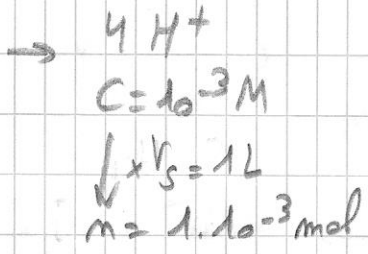 → 4 H+
C = 10-3 M
↓ x Vs = 1L
n = 1.10-3 mol